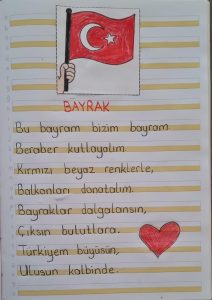 BAYRAK
Bu bayram bizim bayram
Beraber kutlayalım.
Kırmızı beyaz renklerle,
Balkonları donatalım.
Bayraklar dalgalansın,
Çıksın bulutlara.
Türkiyem büyüsün,
Ulusun kalbinde.